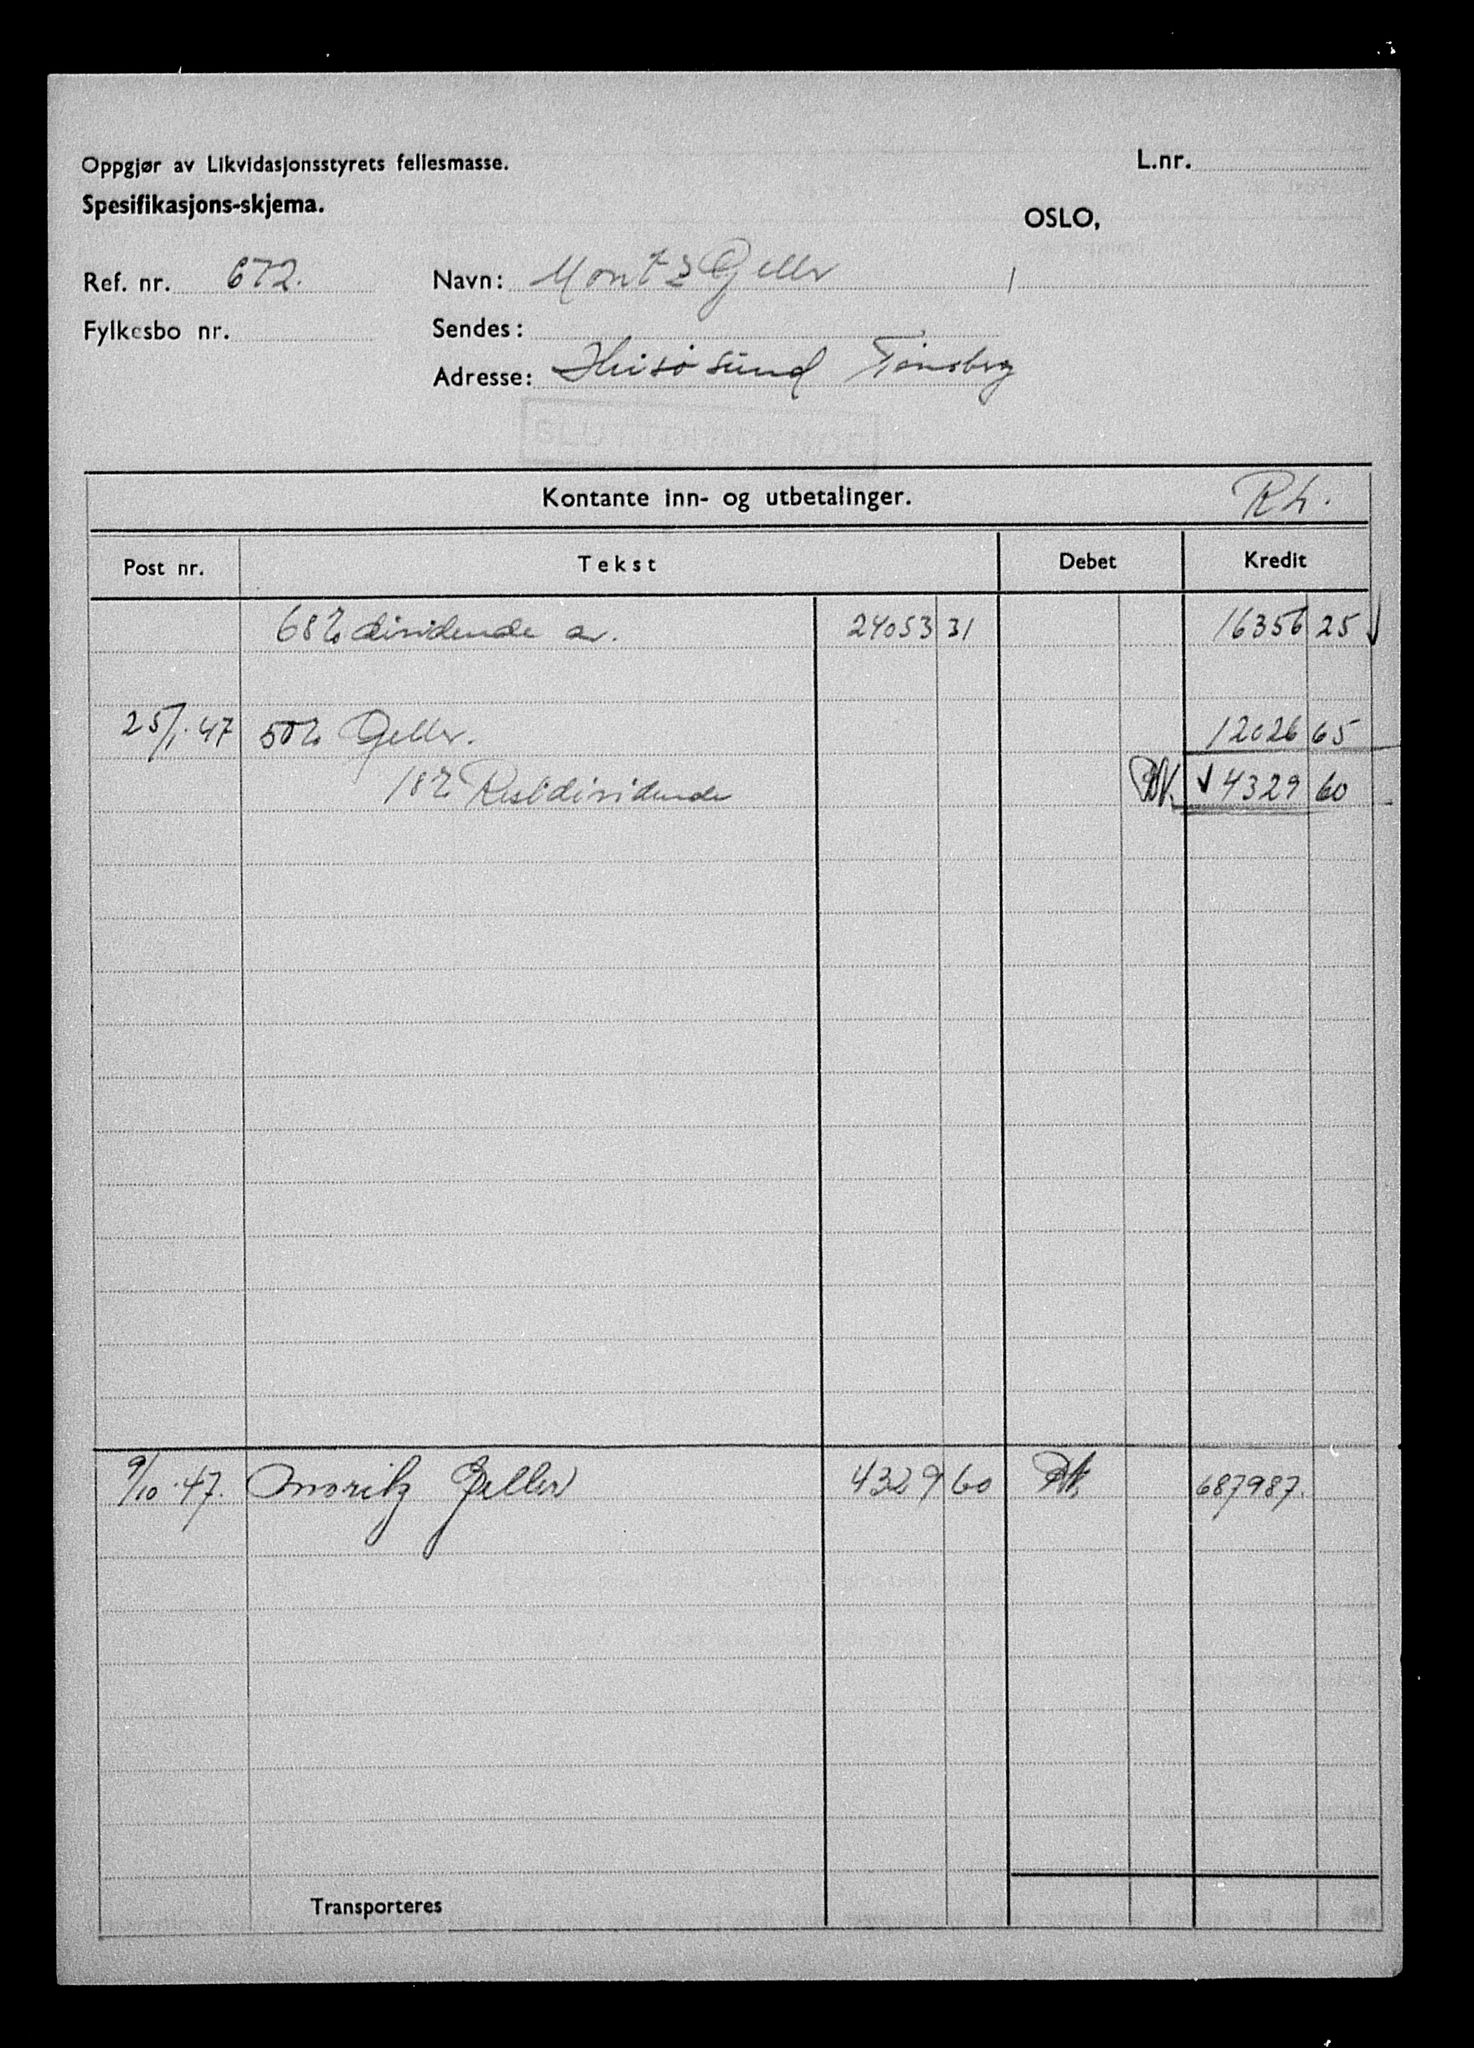 Oppgjør av Likvidasjonsstyrets fellesmasse. L.nr.
Spesifikasjons-skjema.
OSLO,
Ref. nr. 672. Navn: Moritz Geller
Fylkesbo nr. Sendes:
Adresse: Husøsund Tønsberg
Kontante inn- og utbetalinger.
Post nr. Tekst Debet Kredit
68% dividende av. 24053 31 16356 25
25/1.47 50% Geller. 12026 65
18% Restdividende 4329 60
9/10.47. Moritz Geller 4329 60 687987.
Transporteres